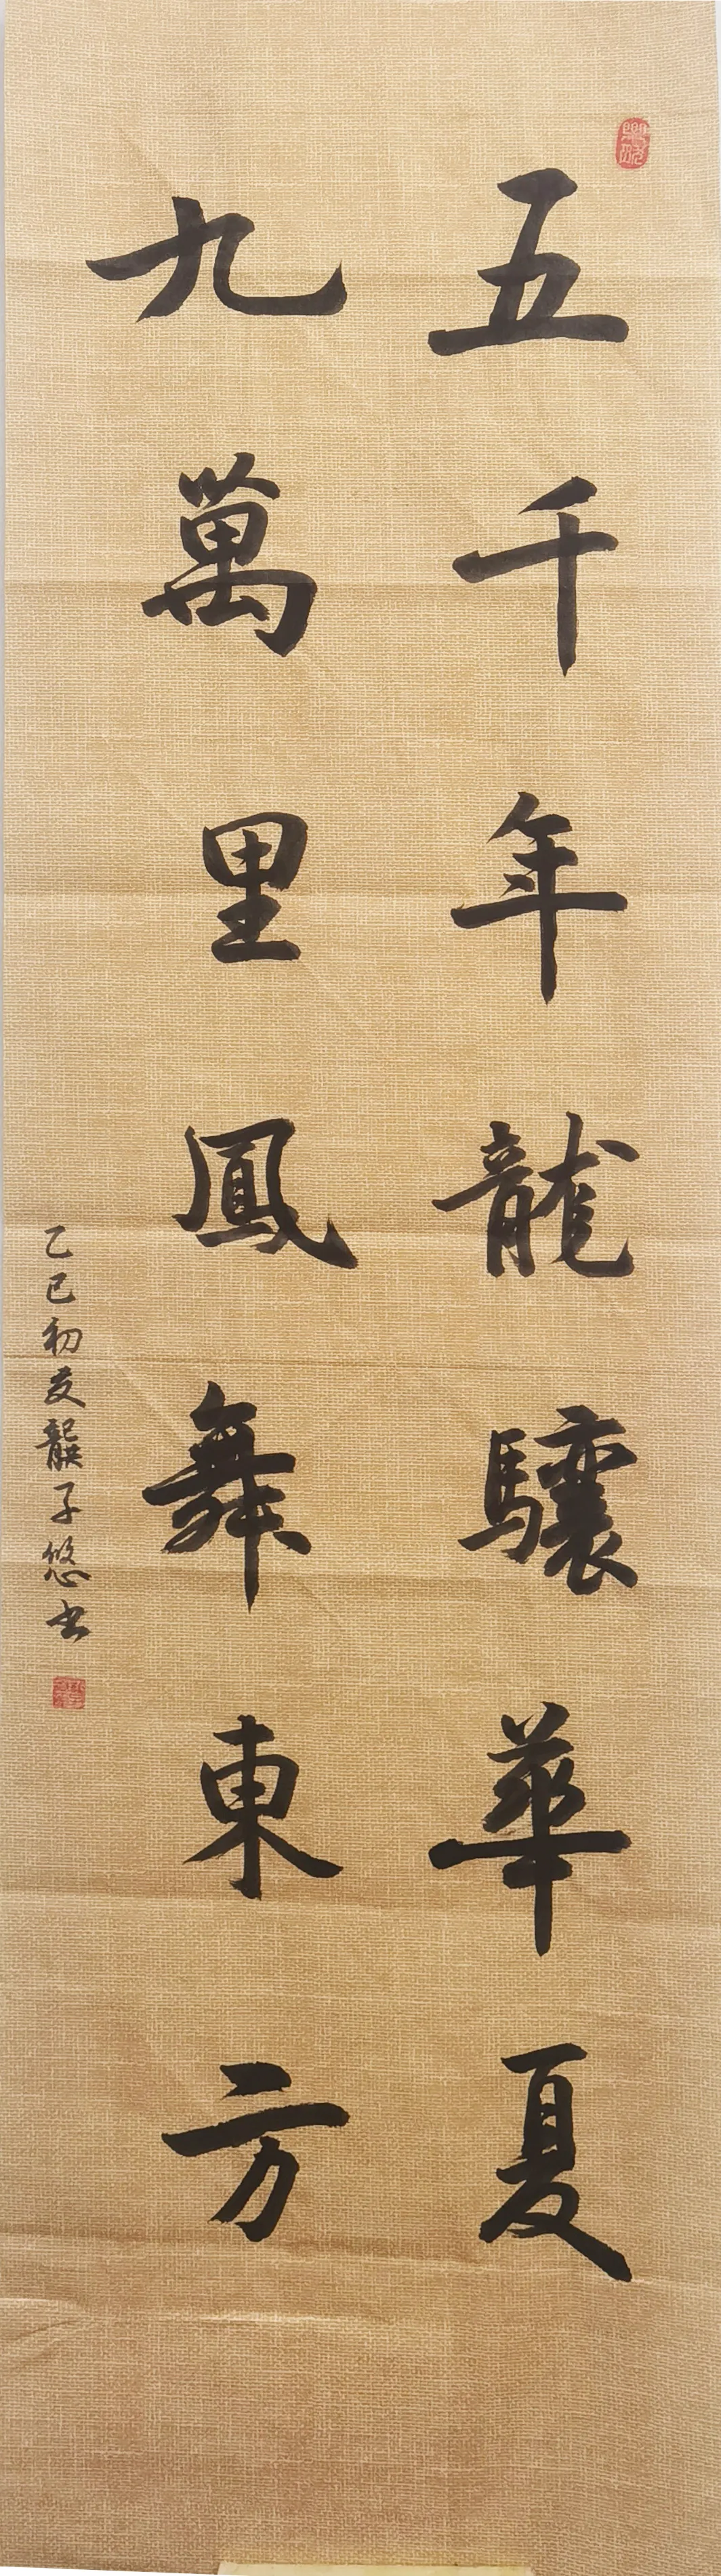 五千年龍驤華夏
九萬里鳳舞東方
乙巳初夏龔子悠书